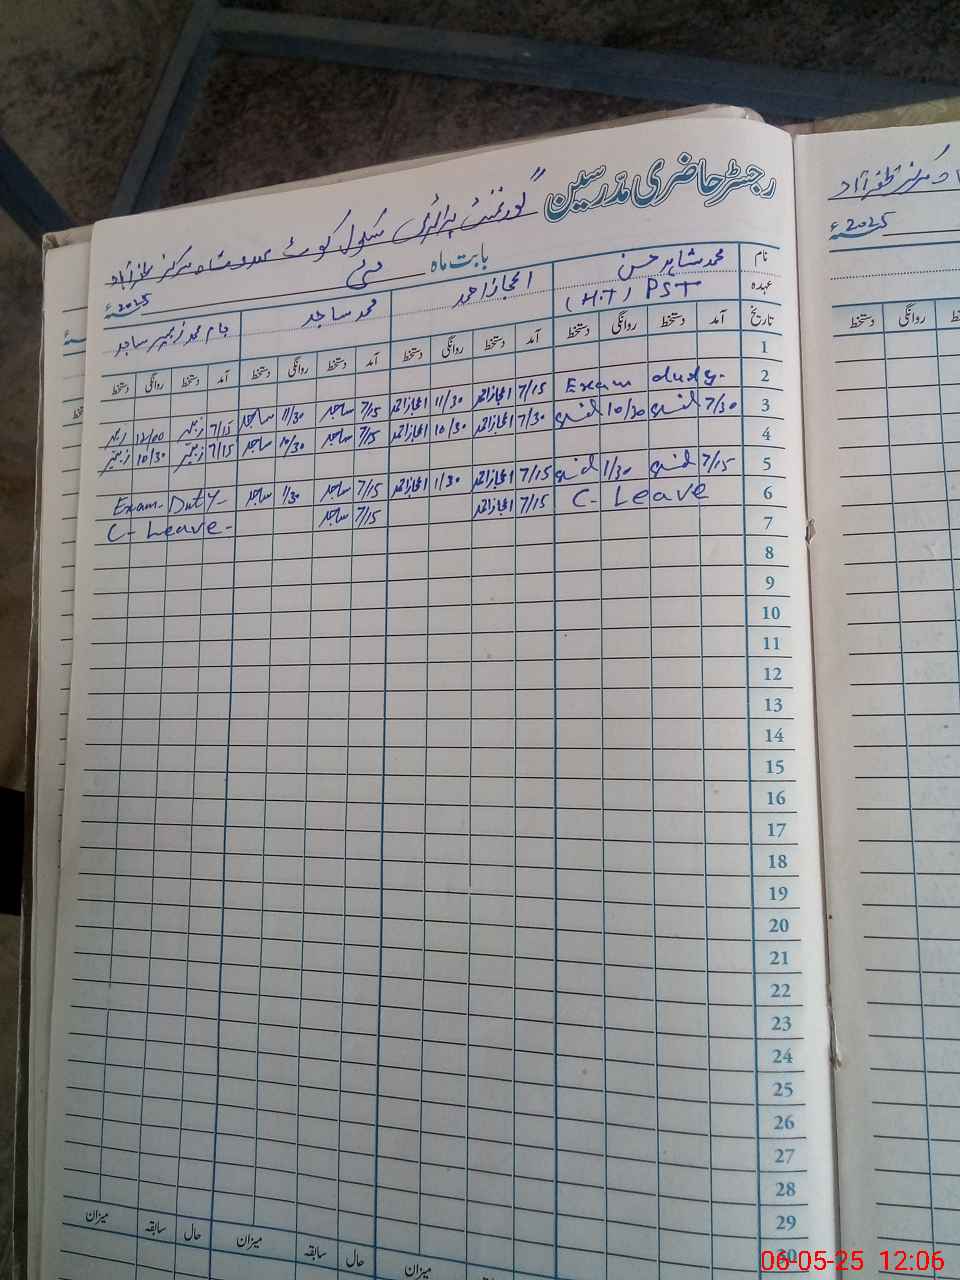 رجسٹر حاضری مدرسین
گورنمنٹ پرائمری سکول کوٹ
بابت ماہ مئی 2025ء
نام محمد شاہد حسن اعجاز احمد محمد ساجد جام محمد زبیر ساجد
عہدہ (H.T) PST
تاریخ آمد دستخط روانگی دستخط آمد دستخط روانگی دستخط آمد دستخط روانگی دستخط آمد دستخط روانگی دستخط
1
2 Exam duty. 7/15 اعجاز احمد 11/30 اعجاز احمد 7/15 ساجد 11/30 ساجد 7/15 زبیر 12/00 زبیر
3 7/30 10/30 7/30 اعجاز احمد 10/30 اعجاز احمد 7/15 ساجد 10/30 ساجد 7/15 زبیر 10/30 زبیر
4
5 7/15 1/30 7/15 اعجاز احمد 1/30 اعجاز احمد 7/15 ساجد 1/30 ساجد Exam-Duty-
6 C- Leave 7/15 اعجاز احمد 7/15 ساجد C- Leave-
7
8
9
10
11
12
13
14
15
16
17
18
19
20
21
22
23
24
25
26
27
28
29
30
میزان سابقہ حال میزان سابقہ حال میزان سابقہ
2025ء
دستخط روانگی دستخط
06-05-25 12:06